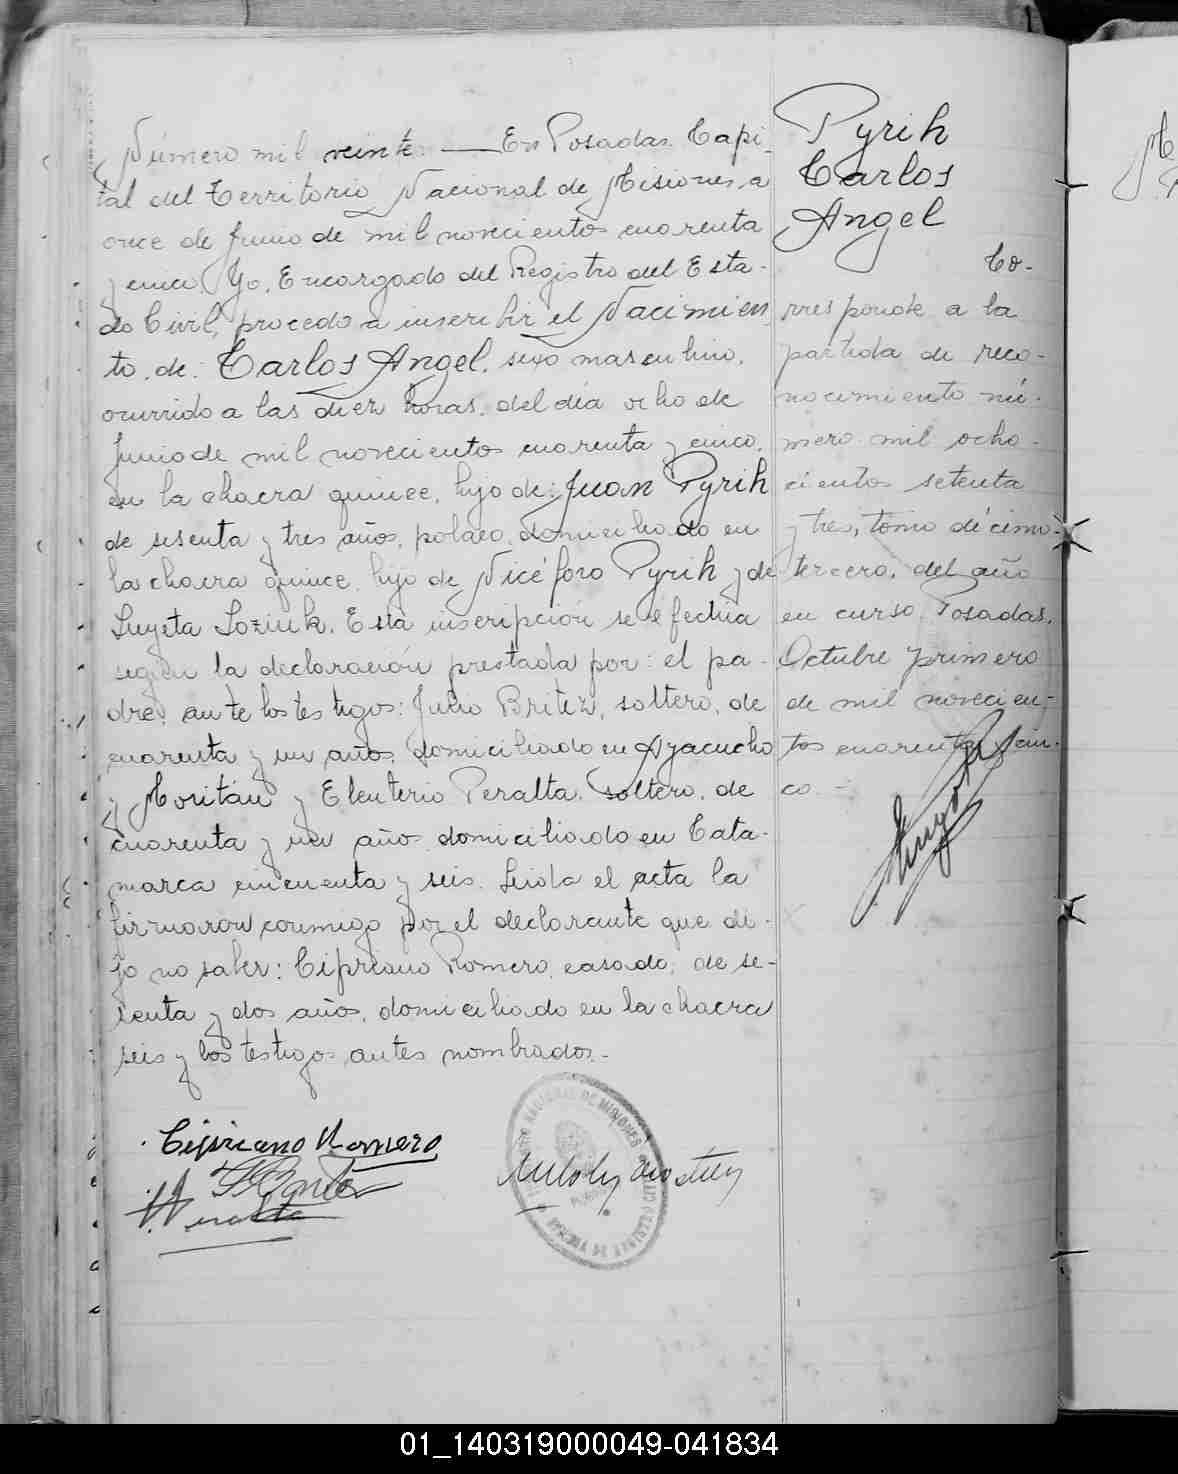 Número mil veinte. — En Posadas. Capi-
tal del Territorio Nacional de Misiones, a
once de Junio de mil novecientos cuarenta
y cinco. Yo, Encargado del Registro del Esta-
do Civil, procedo a inscribir el Nacimien
to. de: Carlos Angel. sexo masculino,
ocurrido a las diez horas. del día ocho de
Junio de mil novecientos cuarenta y cinco,
en la chacra quince, hijo de: Juan Pyrih
de sesenta y tres años, polaco, domiciliado en
la chacra quince, hijo de Nicéforo Pyrih y de
Luyeta Loziuk. Esta inscripción se efectúa
según la declaración prestada por: el pa-
dre, ante los testigos: Julio Britez, soltero, de
cuarenta y un años, domiciliado en Ayacucho
y Moritán y Eleuterio Peralta. soltero. de
cuarenta y un años domiciliado en Cata-
marca cincuenta y seis. Leída el acta la
firmaron conmigo por el declarante que di-
jo no saber: Cipriano Romero, casado, de se-
senta y dos años, domiciliado en la chacra
seis y los testigos antes nombrados.-
Cipriano Romero
Pyrih
Carlos
Angel
Co-
rresponde a la
partida de reco-
nocimiento nú-
mero mil ocho-
cientos setenta
y tres, tomo décimo-
tercero, del año
en curso. Posadas,
Octubre primero
de mil novecien-
tos cuarenta y cin-
co.-
01_140319000049-041834